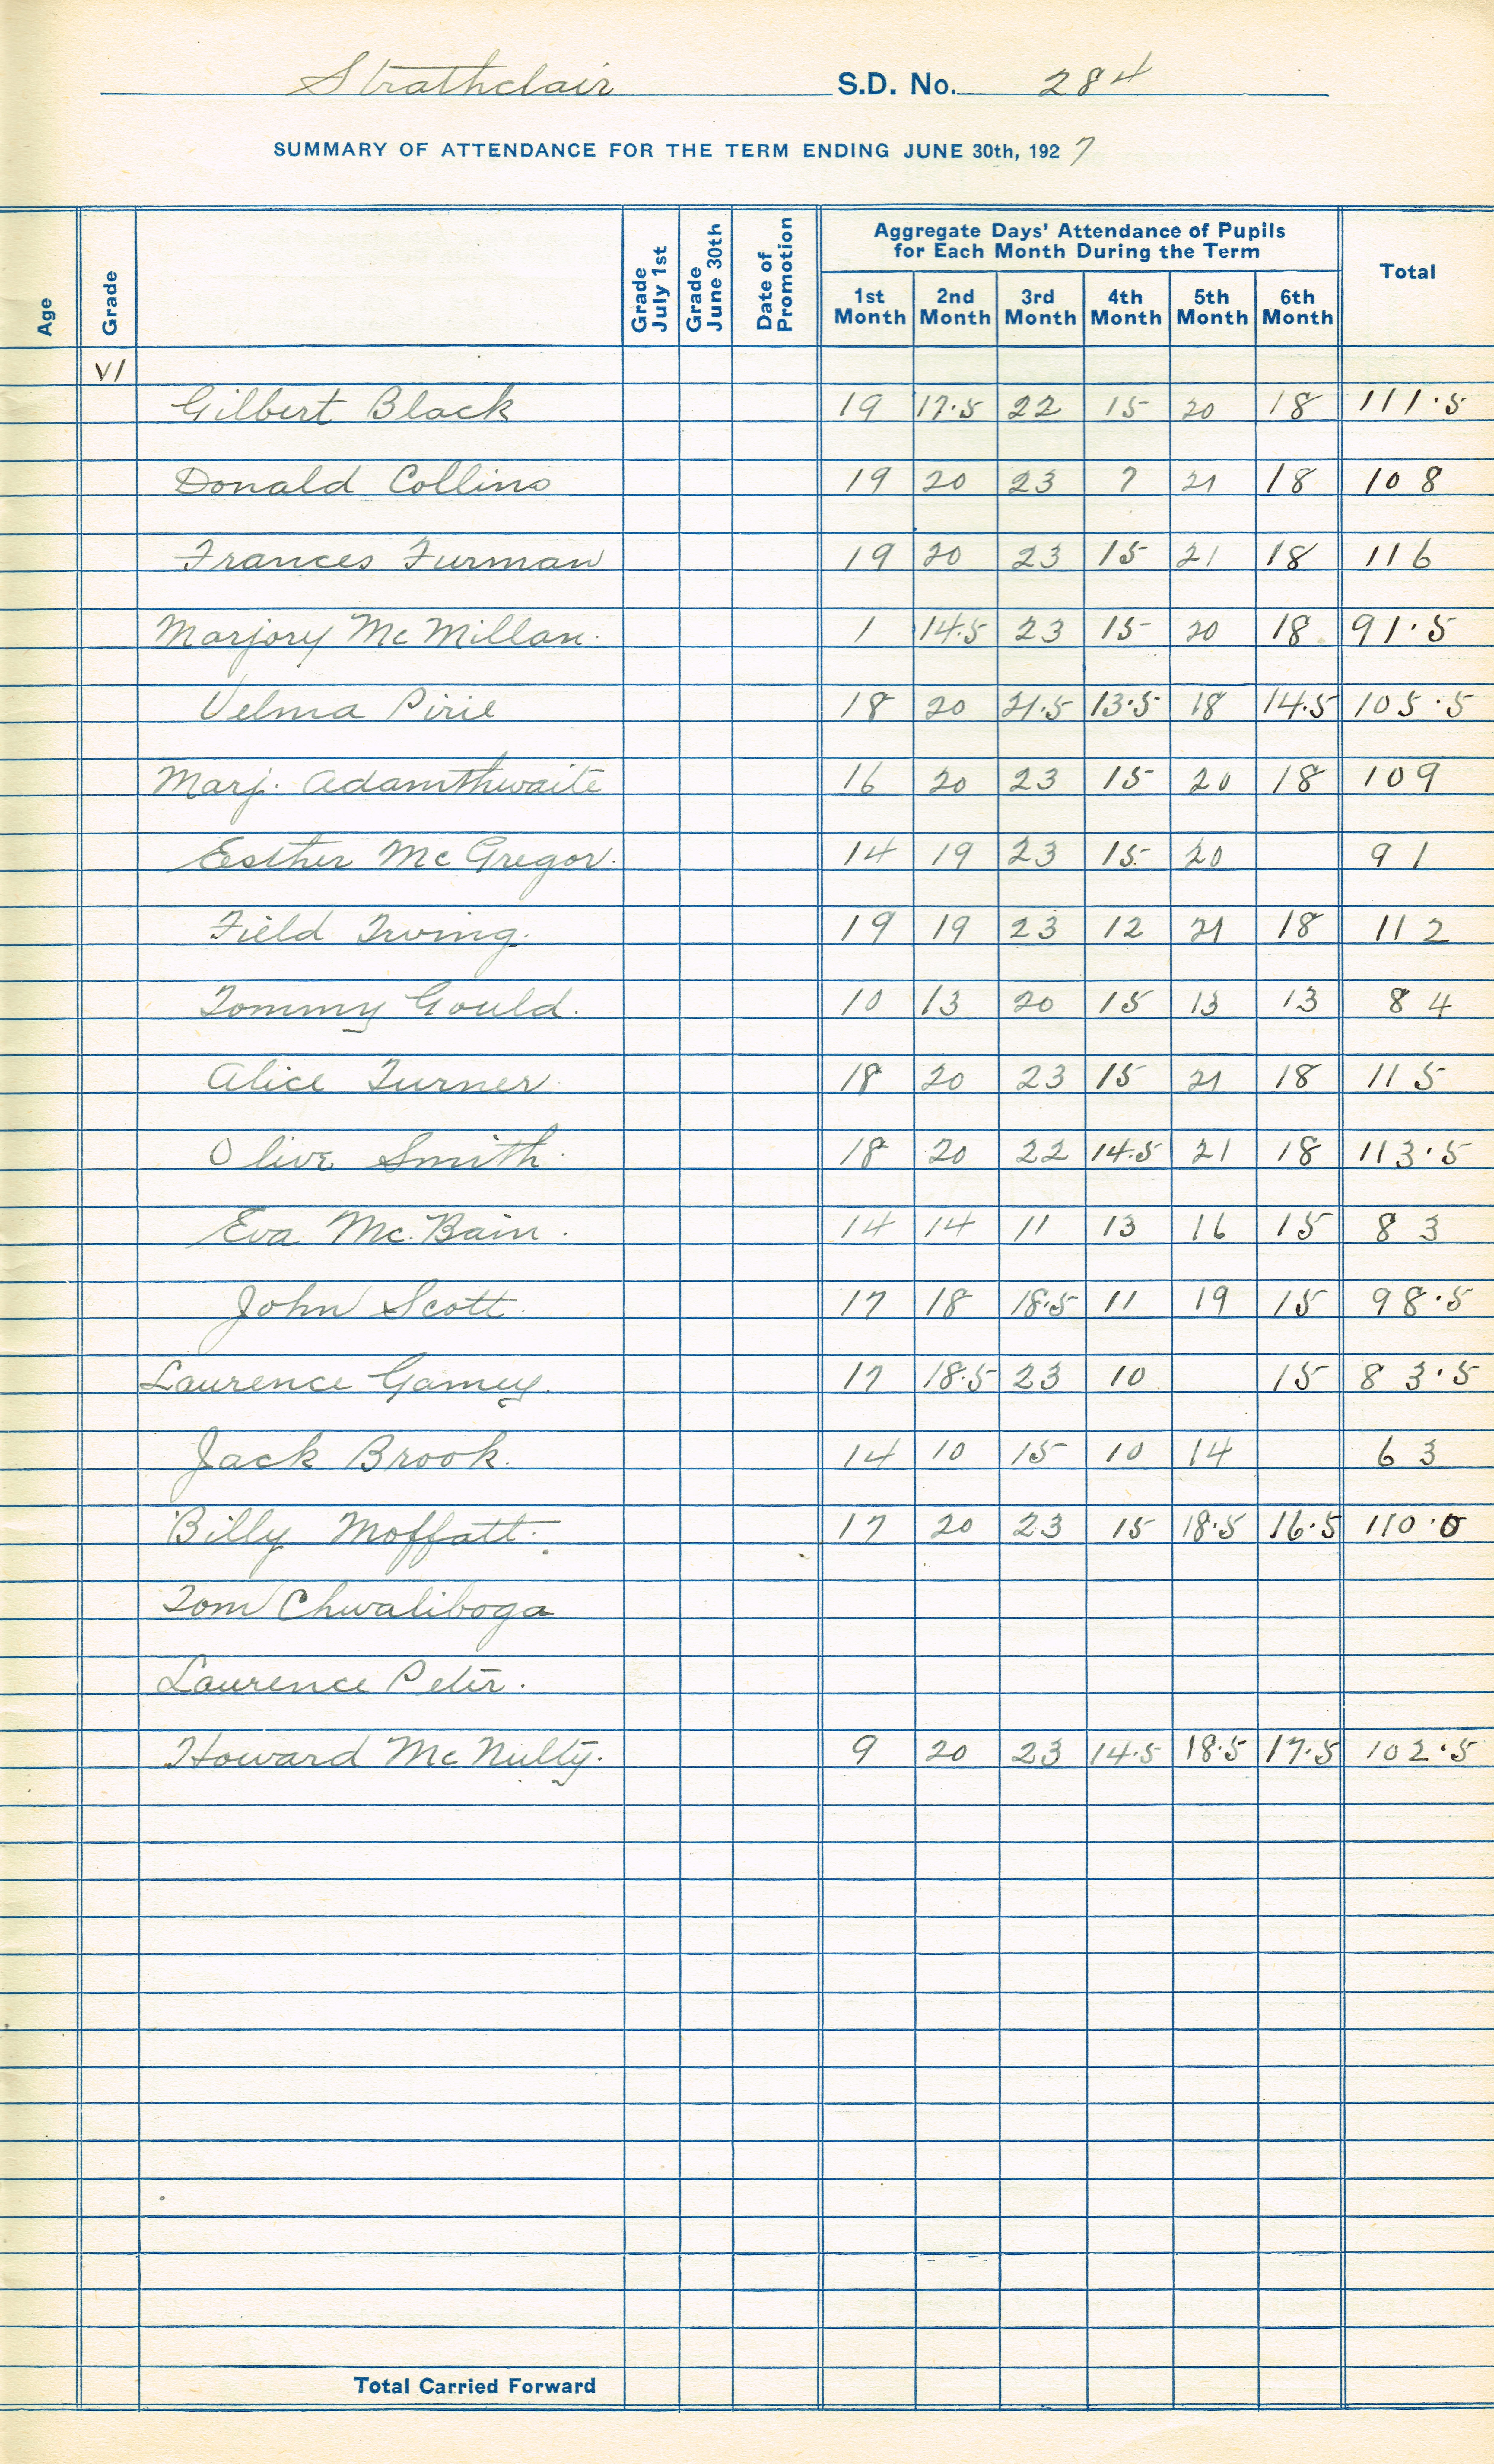 Strathclair S.D. No. 284
SUMMARY OF ATTENDANCE FOR THE TERM ENDING JUNE 30th, 1927
Age Grade Grade July 1st Grade June 30th Date of Promotion Aggregate Days' Attendance of Pupils for Each Month During the Term Total
1st Month 2nd Month 3rd Month 4th Month 5th Month 6th Month
VI
Gilbert Black 19 17.5 22 15 20 18 111.5
Donald Collins 19 20 23 7 21 18 108
Frances Furman 19 20 23 15 21 18 116
Marjory McMillan. 1 14.5 23 15 20 18 91.5
Velma Pirie 18 20 21.5 13.5 18 14.5 105.5
Marj. Adamthwaite 16 20 23 15 20 18 109
Esther McGregor. 14 19 23 15 20 91
Field Irving. 19 19 23 12 21 18 112
Tommy Gould. 10 13 20 15 13 13 84
Alice Turner 18 20 23 15 21 18 115
Olive Smith. 18 20 22 14.5 21 18 113.5
Eva Mc.Bain. 14 14 11 13 16 15 83
John Scott. 17 18 18.5 11 19 15 98.5
Laurence Gamey. 17 18.5 23 10 15 83.5
Jack Brook. 14 10 15 10 14 63
Billy Moffatt. 17 20 23 15 18.5 16.5 110.0
Tom Chwaliboga
Laurence Peter.
Howard McNulty. 9 20 23 14.5 18.5 17.5 102.5
Total Carried Forward